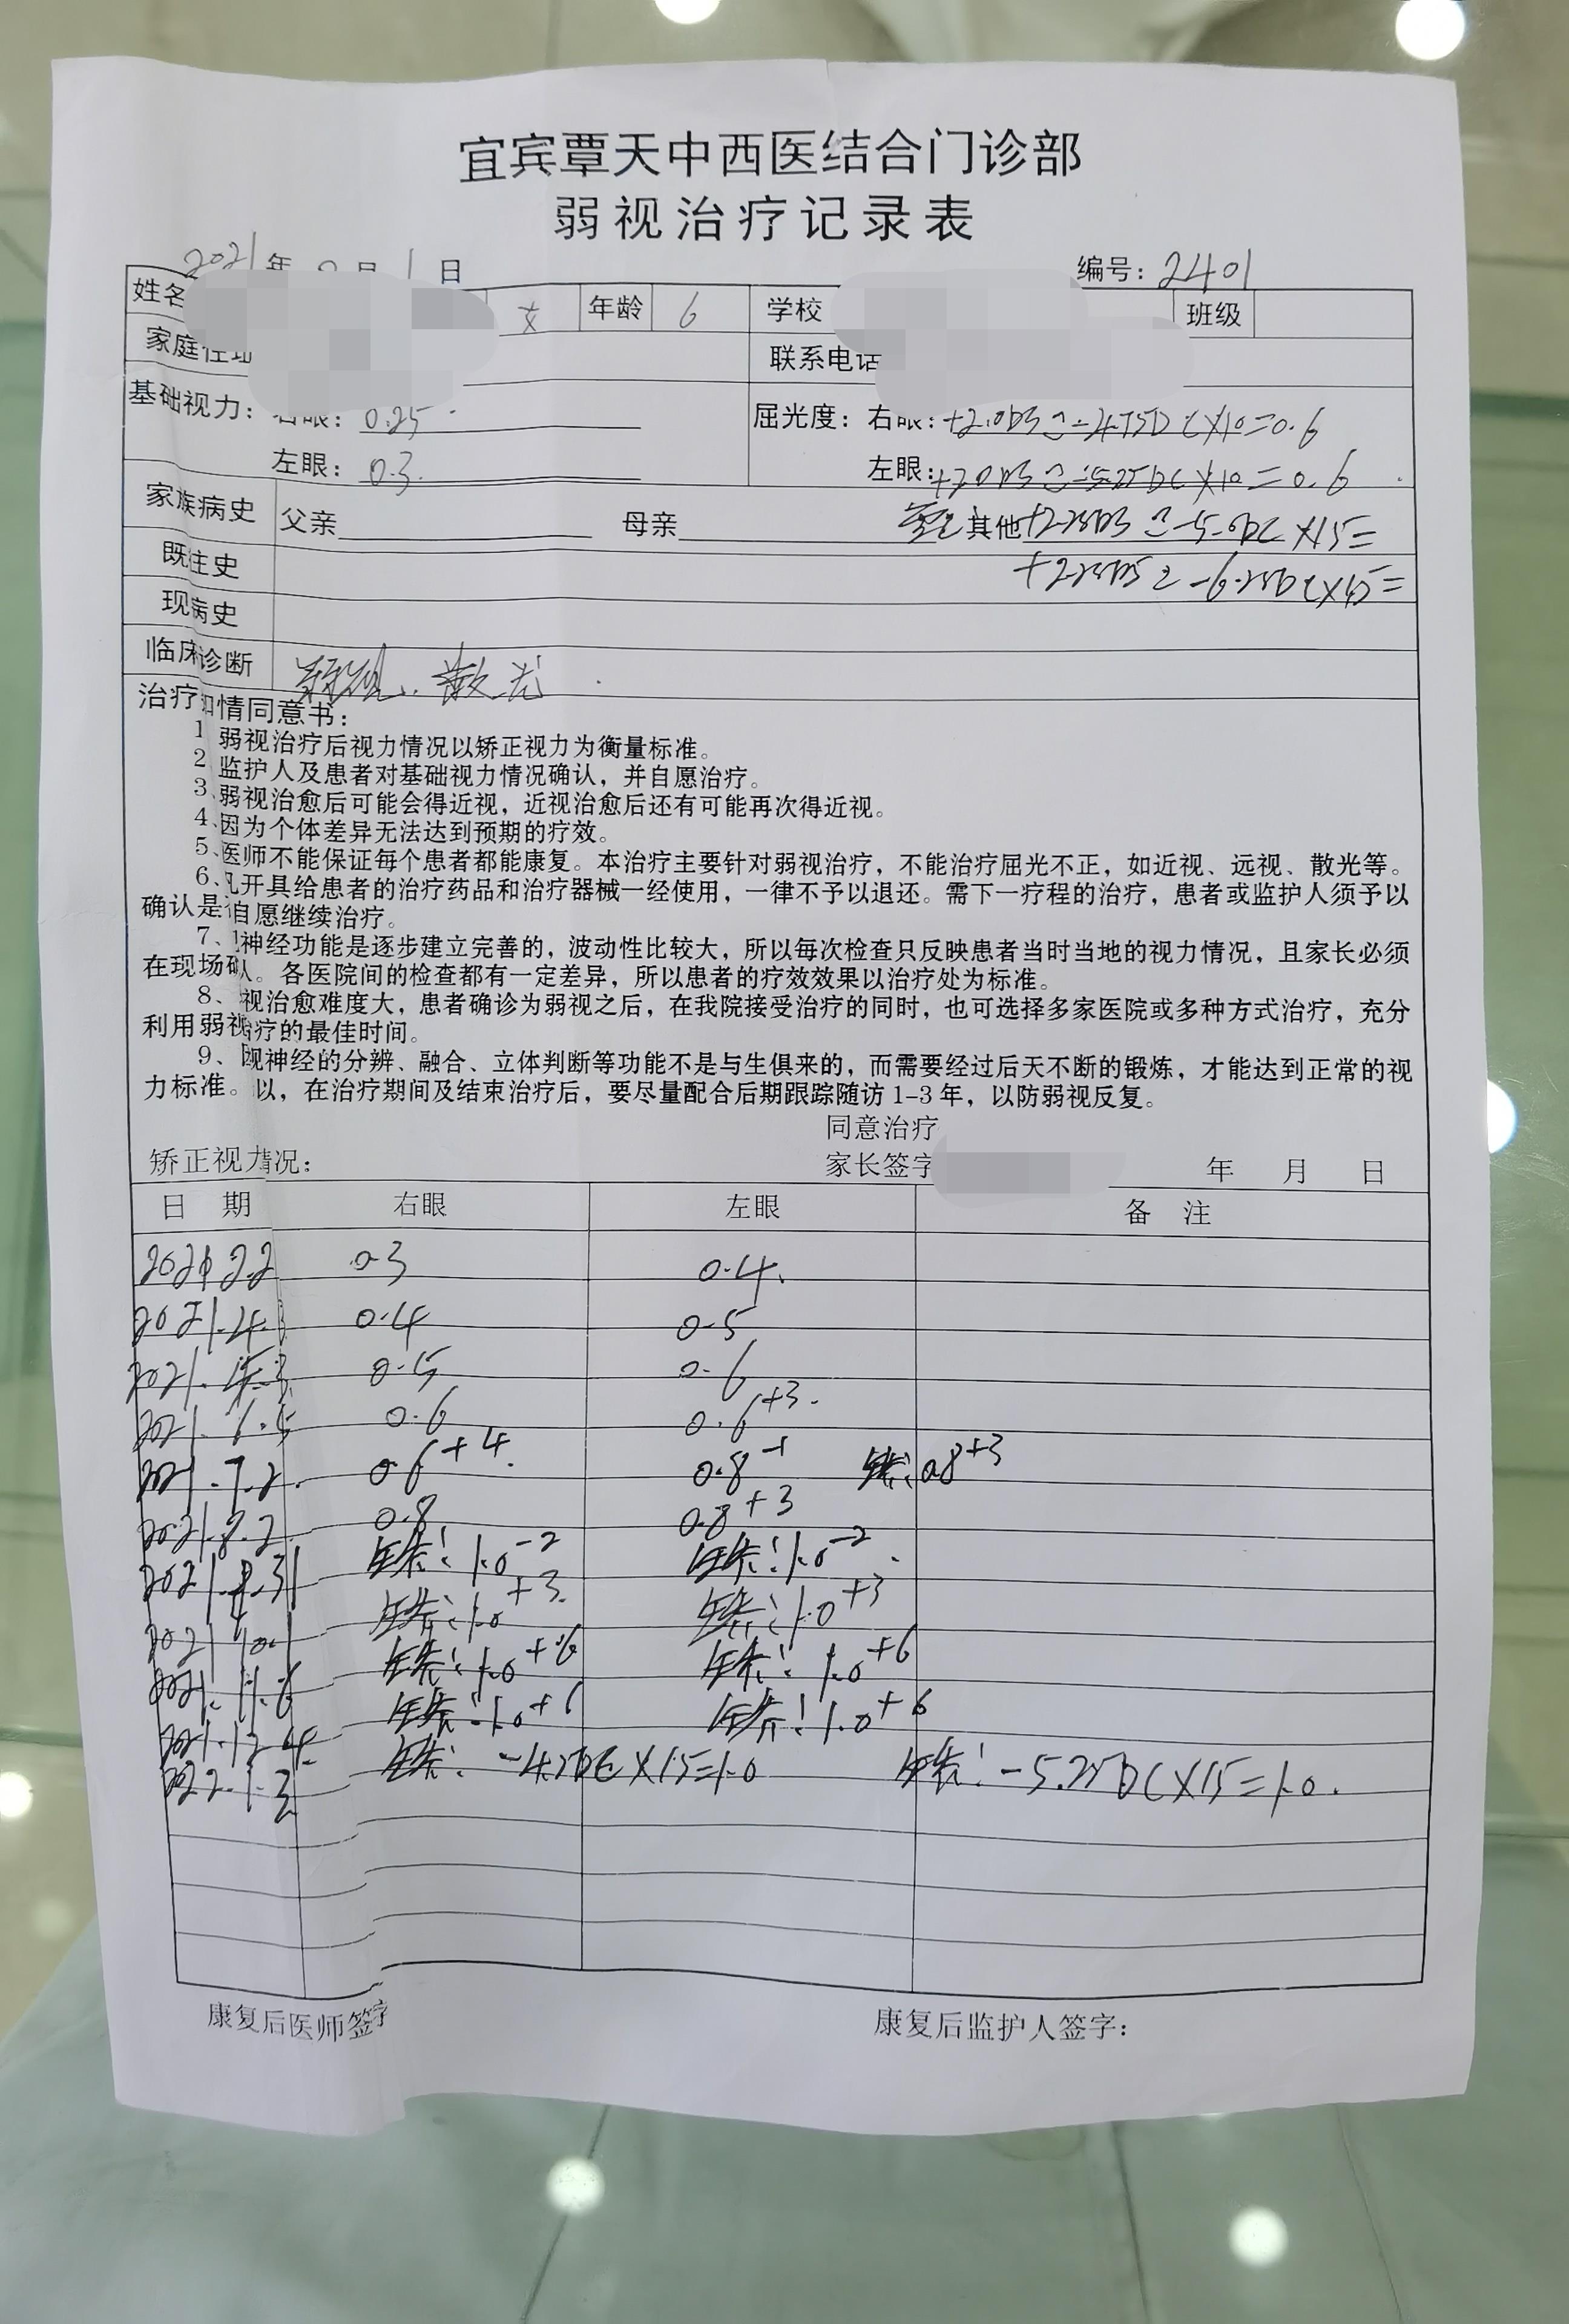 宜宾覃天中西医结合门诊部
弱视治疗记录表
2021年 月1日 编号：2401
姓名 女 年龄 6 学校 班级
家庭住址 联系电话
基础视力：右眼：0.25 屈光度：右眼：+2.0DS -4.75DC×10=0.6
左眼：0.3 左眼：+2.0DS -5.25DC×10=0.6
家族病史 父亲 母亲 其他+2.25DS -5.0DC×15=
+2.25DS -6.25DC×15=
既往史
现病史
临床诊断 弱视、散光
治疗知情同意书：
1、弱视治疗后视力情况以矫正视力为衡量标准。
2、监护人及患者对基础视力情况确认，并自愿治疗。
3、弱视治愈后可能会得近视，近视治愈后还有可能再次得近视。
4、因为个体差异无法达到预期的疗效。
5、医师不能保证每个患者都能康复。本治疗主要针对弱视治疗，不能治疗屈光不正，如近视、远视、散光等。
6、凡开具给患者的治疗药品和治疗器械一经使用，一律不予以退还。需下一疗程的治疗，患者或监护人须予以
确认是自愿继续治疗。
7、视神经功能是逐步建立完善的，波动性比较大，所以每次检查只反映患者当时当地的视力情况，且家长必须
在现场确认。各医院间的检查都有一定差异，所以患者的疗效效果以治疗处为标准。
8、弱视治愈难度大，患者确诊为弱视之后，在我院接受治疗的同时，也可选择多家医院或多种方式治疗，充分
利用弱视治疗的最佳时间。
9、视神经的分辨、融合、立体判断等功能不是与生俱来的，而需要经过后天不断的锻炼，才能达到正常的视
力标准。以，在治疗期间及结束治疗后，要尽量配合后期跟踪随访1-3年，以防弱视反复。
同意治疗
矫正视力情况： 家长签字 年 月 日
日 期 右眼 左眼 备 注
2021 2.2 0.3 0.4
2021.4. 0.4 0.5
2021. 0.5 0.6
2021.6.5 0.6 0.6+3
2021.7.2 0.6+4 0.8-1 0.8+3
2021.8.2 0.8 0.8+3
2021.8.31 1.0-2 1.0-2
2021 10.1 1.0+3 1.0+3
2021.11.6 1.0+6 1.0+6
2021.12.4 1.0+6 1.0+6
2022.1.2 -4.75DC×15=1.0 -5.25DC×15=1.0
康复后医师签字 康复后监护人签字：